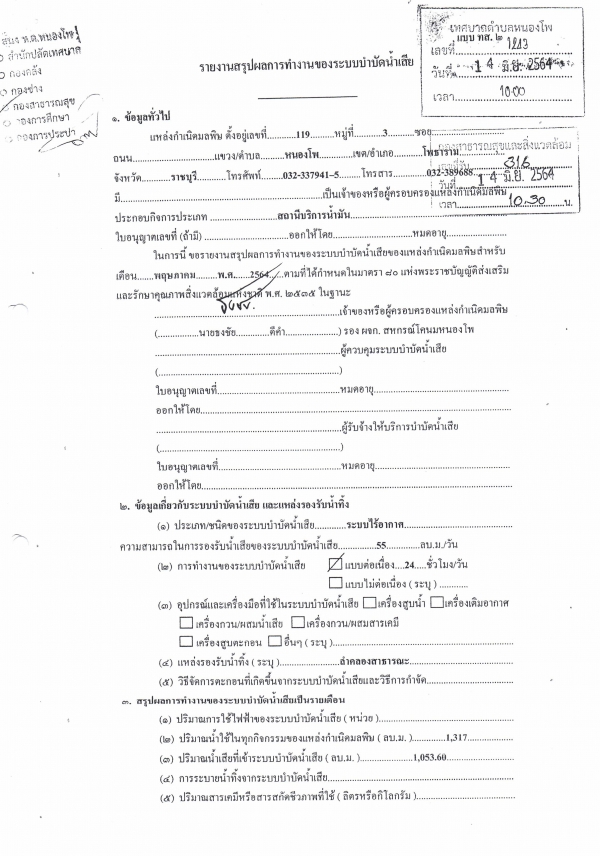 เทศบาลตำบลหนองโพ
แบบ ทส. ๒
เลขที่ 1213
วันที่ 14 มิ.ย. 2564
เวลา 10.00
สำนักปลัดเทศบาล
กองคลัง
กองช่าง
กองสาธารณสุข
กองการศึกษา
กองการประปา
รายงานสรุปผลการทำงานของระบบบำบัดน้ำเสีย
กองสาธารณสุขและสิ่งแวดล้อม
816
วันที่ 14 มิ.ย. 2564
เวลา 10.30 น.
๑. ข้อมูลทั่วไป
แหล่งกำเนิดมลพิษ ตั้งอยู่เลขที่............119........หมู่ที่.........3.........ซอย
ถนน............................แขวง/ตำบล.........หนองโพ..........เขต/อำเภอ..........โพธาราม
จังหวัด..........ราชบุรี............โทรศัพท์......032-337941-5..........โทรสาร..........032-389688
มี..............................................................................เป็นเจ้าของหรือผู้ครอบครองแหล่งกำเนิดมลพิษ
ประกอบกิจการประเภท ........................สถานีบริการน้ำมัน
ใบอนุญาตเลขที่ (ถ้ามี) ............................ออกให้โดย............................หมดอายุ............................
ในการนี้ ขอรายงานสรุปผลการทำงานของระบบบำบัดน้ำเสียของแหล่งกำเนิดมลพิษสำหรับ
เดือน......พฤษภาคม.........พ.ศ......2564......ตามที่ได้กำหนดในมาตรา ๘๐ แห่งพระราชบัญญัติส่งเสริม
และรักษาคุณภาพสิ่งแวดล้อมแห่งชาติ พ.ศ. ๒๕๓๕ ในฐานะ
................................................................เจ้าของหรือผู้ครอบครองแหล่งกำเนิดมลพิษ
(..............นายธงชัย............ดีคำ..................) รอง ผจก. สหกรณ์โคนมหนองโพ
................................................................ผู้ควบคุมระบบบำบัดน้ำเสีย
(................................................................)
ใบอนุญาตเลขที่............................................หมดอายุ............................................
ออกให้โดย............................................................................................
................................................................ผู้รับจ้างให้บริการบำบัดน้ำเสีย
(................................................................)
ใบอนุญาตเลขที่............................................หมดอายุ............................................
ออกให้โดย............................................................................................
๒. ข้อมูลเกี่ยวกับระบบบำบัดน้ำเสีย และแหล่งรองรับน้ำทิ้ง
(๑) ประเภท/ชนิดของระบบบำบัดน้ำเสีย............ระบบไร้อากาศ............................
ความสามารถในการรองรับน้ำเสียของระบบบำบัดน้ำเสีย..............55.............ลบ.ม./วัน
(๒) การทำงานของระบบบำบัดน้ำเสีย ☑ แบบต่อเนื่อง....24.....ชั่วโมง/วัน
☐ แบบไม่ต่อเนื่อง ( ระบุ ) ...........
(๓) อุปกรณ์และเครื่องมือที่ใช้ในระบบบำบัดน้ำเสีย ☐ เครื่องสูบน้ำ ☐ เครื่องเติมอากาศ
☐ เครื่องกวน/ผสมน้ำเสีย ☐ เครื่องกวน/ผสมสารเคมี
☐ เครื่องสูบตะกอน ☐ อื่นๆ ( ระบุ )............................................
(๔) แหล่งรองรับน้ำทิ้ง ( ระบุ ).....................ลำคลองสาธารณะ............................
(๕) วิธีจัดการตะกอนที่เกิดขึ้นจากระบบบำบัดน้ำเสียและวิธีการกำจัด............................
๓. สรุปผลการทำงานของระบบบำบัดน้ำเสียเป็นรายเดือน
(๑) ปริมาณการใช้ไฟฟ้าของระบบบำบัดน้ำเสีย ( หน่วย )............................
(๒) ปริมาณน้ำใช้ในทุกกิจกรรมของแหล่งกำเนิดมลพิษ ( ลบ.ม. )............1,317................
(๓) ปริมาณน้ำเสียที่เข้าระบบบำบัดน้ำเสีย ( ลบ.ม. )..................1,053.60........................
(๔) การระบายน้ำทิ้งจากระบบบำบัดน้ำเสีย............................................
(๕) ปริมาณสารเคมีหรือสารสกัดชีวภาพที่ใช้ ( ลิตรหรือกิโลกรัม )............................